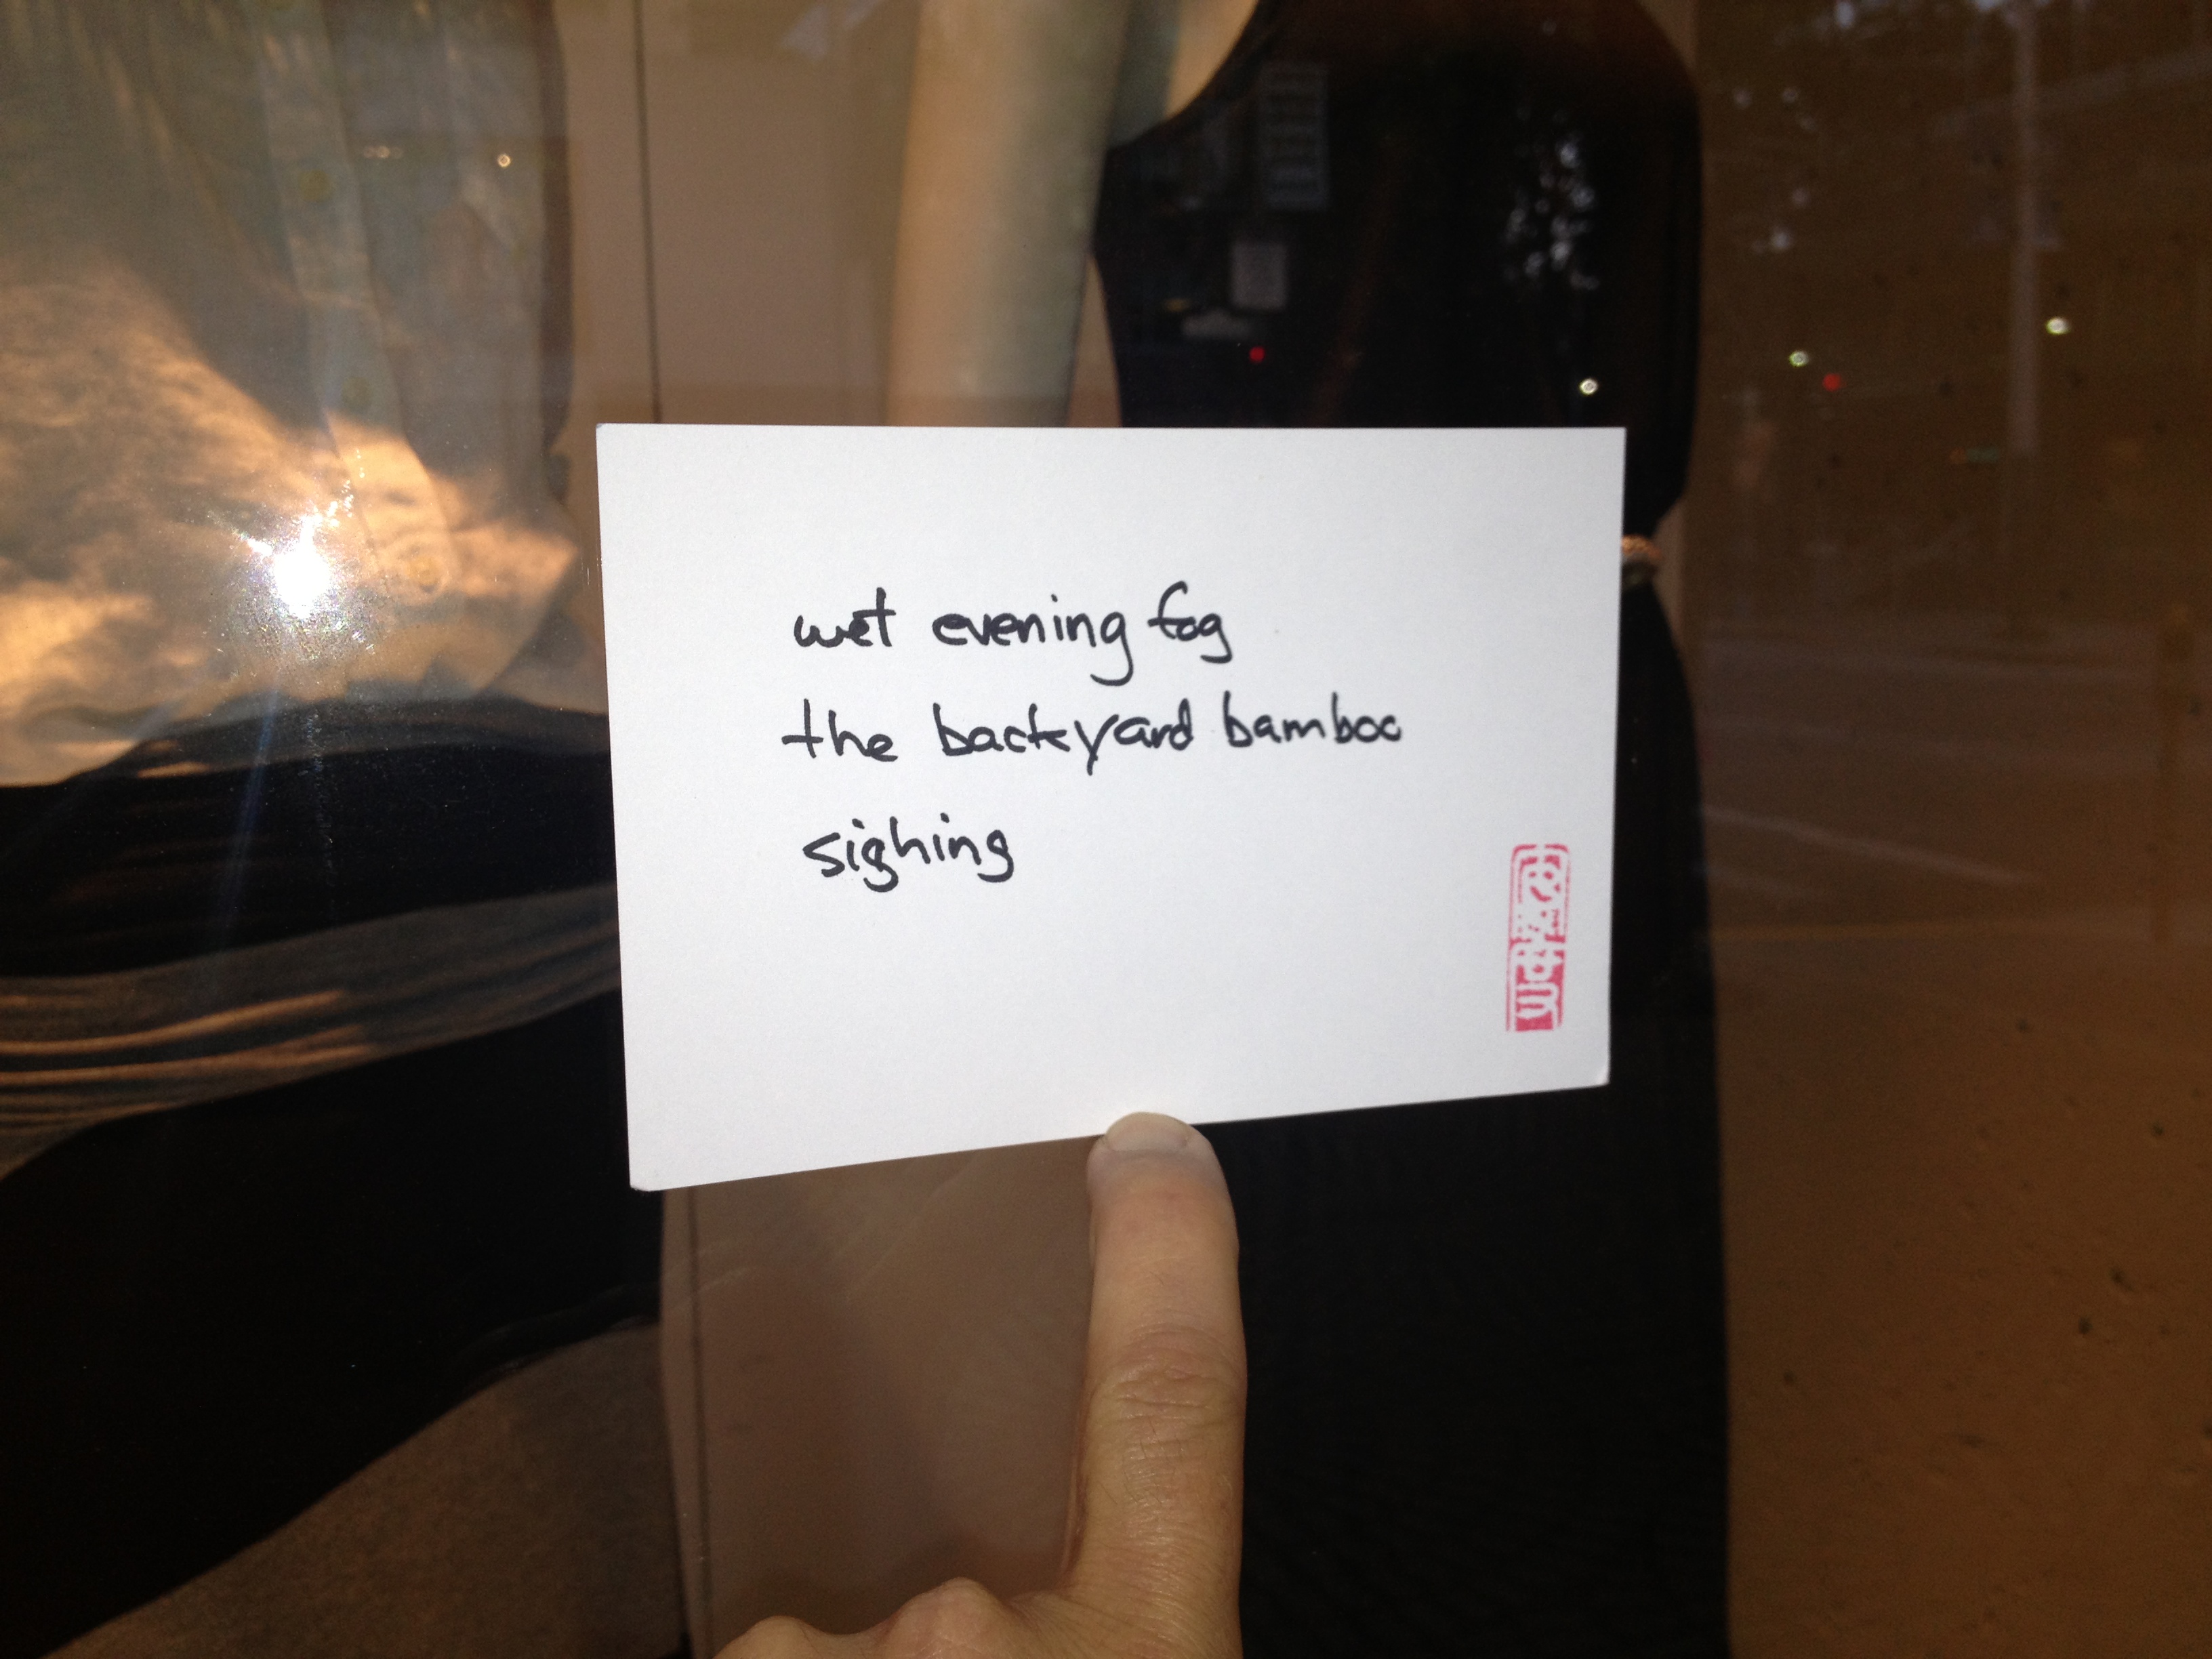 wet evening fog
the backyard bamboo
sighing